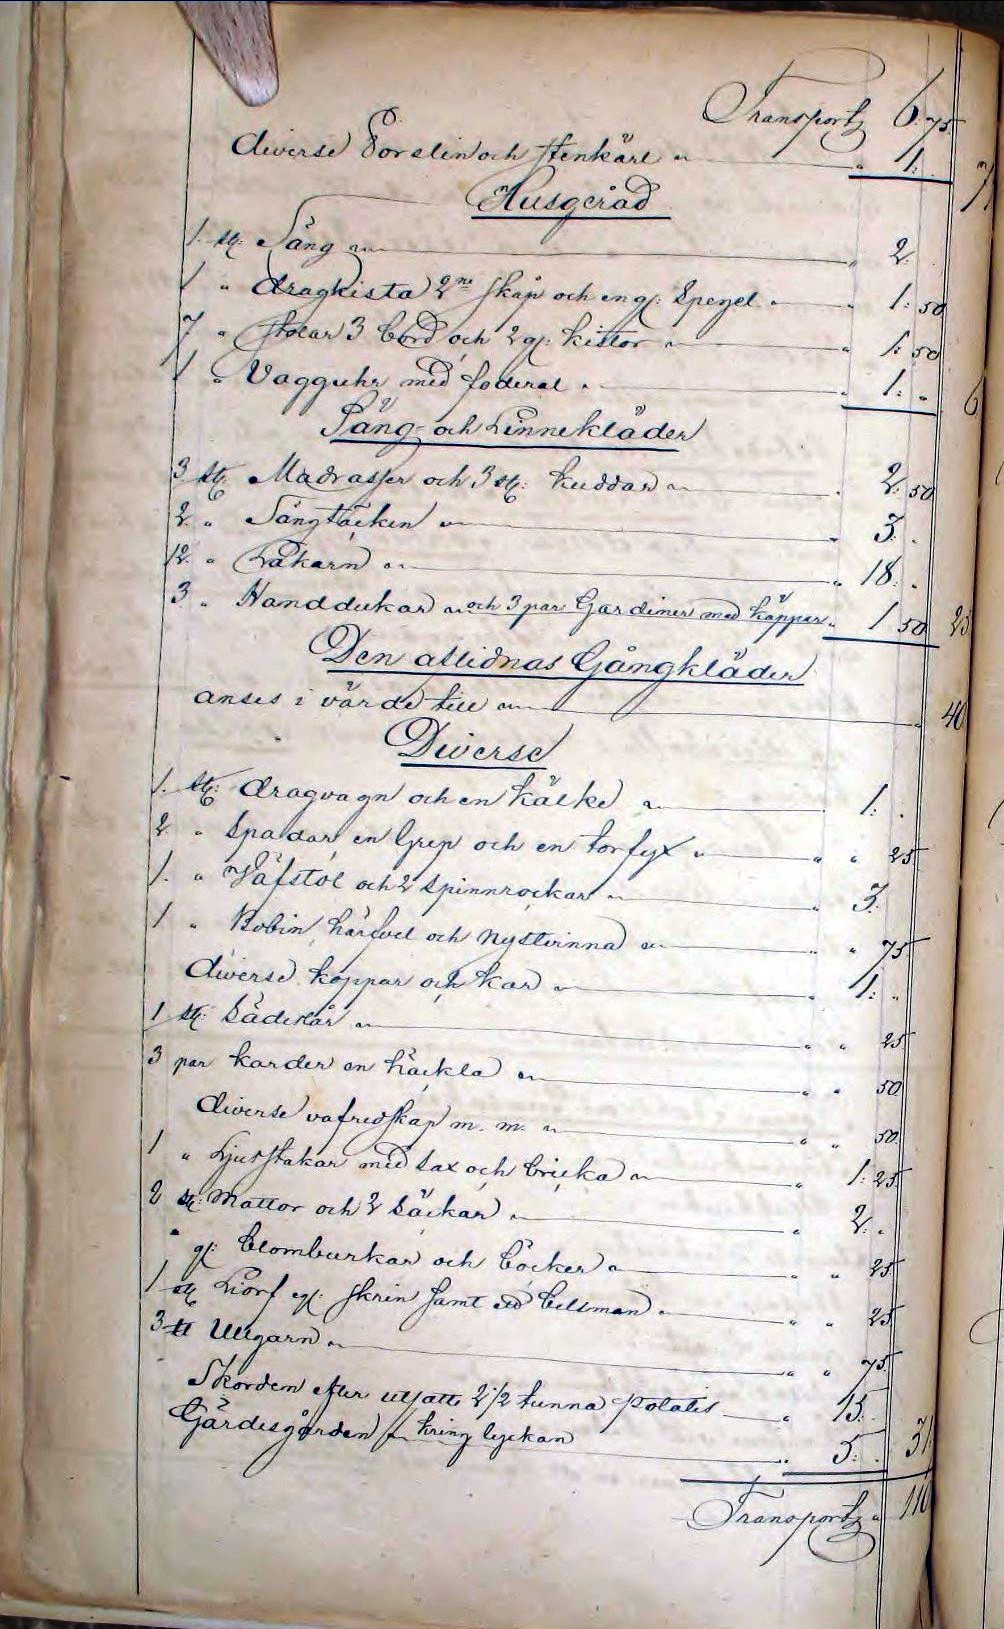 Transport 6. 75
diverse Porslin och stenkärl " 1:. 7
Husgeråd
1. st: Säng " 2:
1 " dragkista 2ne skåp och en gl: Spegel " 1: 50
7 " stolar 3 bord och 2 gl: kistor " 1: 50
1 " Vagguhr med foderal " 1: " 6
Säng- och Linnekläder
3 st: Madrasser och 3 st: kuddar " 2: 50
2 " Sängtäcken " 3. .
12 " Lakarn " 18: .
3 " Handdukar " och 3 par Gardiner med käppar " 1 50 25
Den aflidnas Gångkläder
anses i värde till " 40
Diverse
1. st: dragvagn och en kälke " 1: .
2 " Spadar en Grep och en torfyx " " " 25
1. " Väfstol och 2 Spinnrockar " 3.
1 " Bobin, härfvel och Nystvinna " " 75
diverse koppar och kar " 1: "
1 st: Sädeskar " " " 25
3 par karder en häckla " " " 50
diverse vafredskap m. m. " " " 50
1 " Ljusstakar med sax och bricka " " 1: 25
2 st: Mattor och 2 Säckar " " 2: .
" gl: blomburkar och böcker " " " 25
1 st: Liorf gl: skrin samt belsman " " " 25
3 tt Ullgarn " " " 75
Skörden efter utsatte 2 1/2 tunna Potatis " 15.
Gärdesgården " kring lyckan " 5: . 31
Transport " 110